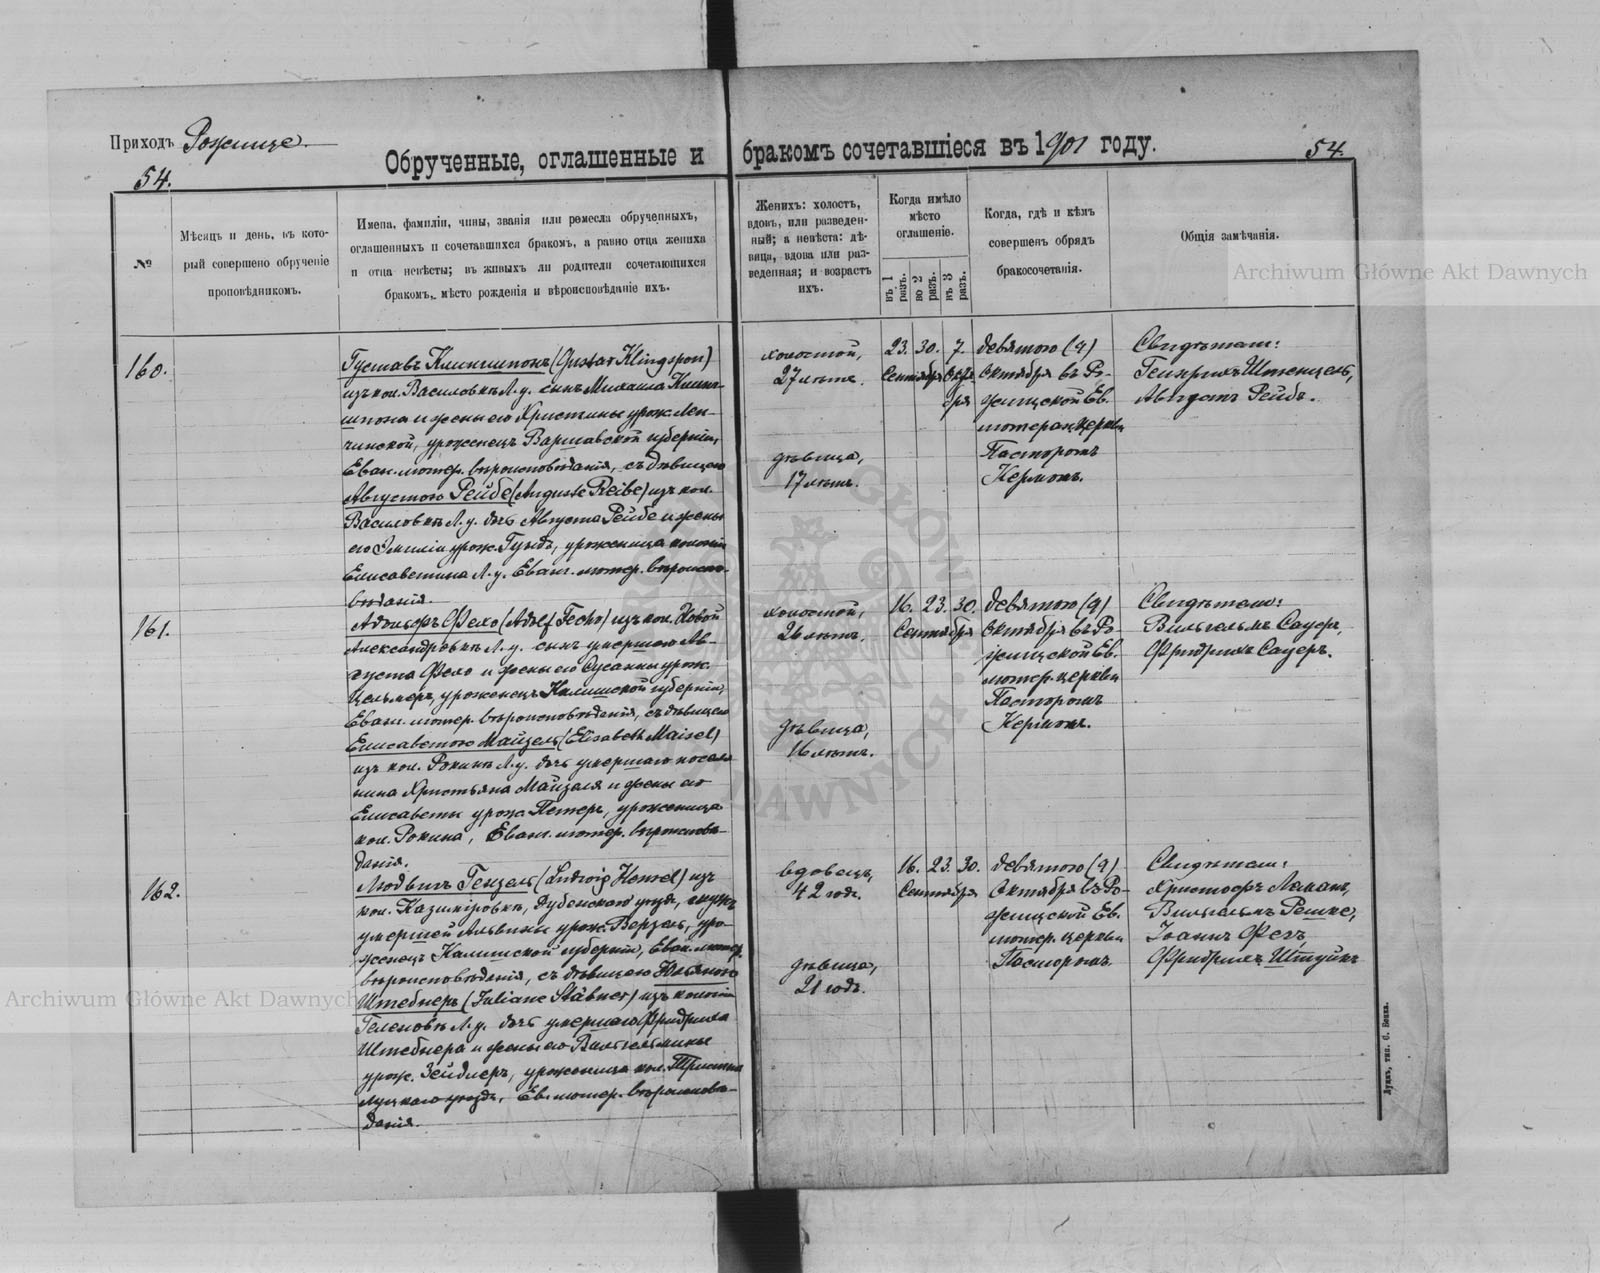 Приходъ Рожище.
54.
Обрученные, оглашенные и бракомъ сочетавшіеся въ 1901 году.
54.
№
Мѣсяцъ и день, въ кото-
рый совершено обрученіе
проповѣдникомъ.
Имена, фамиліи, чины, званія или ремесла обрученныхъ,
оглашенныхъ и сочетавшихся бракомъ, а равно отца жениха
и отца невѣсты; въ живыхъ ли родители сочетающихся
бракомъ, мѣсто рожденія и вѣроисповѣданіе ихъ.
Женихъ: холостъ,
вдовъ, или разведен-
ный; а невѣста: дѣ-
вица, вдова или раз-
веденная; и возрастъ
ихъ.
Когда имѣло
мѣсто
оглашеніе.
въ 1
разъ.
во 2
разъ.
въ 3
разъ.
Когда, гдѣ и кѣмъ
совершенъ обрядъ
бракосочетанія.
Общія замѣчанія.
Archiwum Główne Akt Dawnych
160.
Густавъ Клингшпонъ (Gustav Klingspon)
изъ кол. Василовкѣ Л. у. сынъ Михаила Клинг-
шпона и жены его Христины урож. Лен-
чинской, уроженецъ Варшавской губерніи,
Еван. лютер. вѣроисповѣданія, съ дѣвицею
Августою Рейбе (Auguste Reibe) изъ кол.
Василовкѣ Л. у. дочь Августа Рейбе и жены
его Эмиліи урож. Гундъ, уроженица колоніи
Елисаветина Л. у. Еванг. лютер. вѣроиспо-
вѣданія.
холостой,
27 лѣтъ.
дѣвица,
17 лѣтъ.
23. 30. 7.
Сентября Октя-
бря
девятого (9)
Октября въ Ро-
жищской Ев.
лютеран. церкви
Пасторомъ
Кермомъ.
Свидѣтели:
Генрихъ Штенцель,
Августъ Рейбъ.
161.
Адольфъ Фехо (Adolf Fecho) изъ кол. Новой
Александровкѣ Л. у. сынъ умершаго Ав-
густа Фехо и жены его Сусанны урож.
Цельмеръ, уроженецъ Калишской губерніи,
Еван. лютер. вѣроисповѣданія, съ дѣвицею
Елисаветою Майзель (Elisabeth Maisel)
изъ кол. Рокинѣ Л. у. дочь умершаго поселя-
нина Христьяна Майзеля и жены его
Елисаветы урож. Петеръ, уроженица
кол. Рокина, Еван. лютер. вѣроисповѣ-
данія.
холостой,
26 лѣтъ,
дѣвица,
16 лѣтъ.
16. 23. 30.
Сентября
девятого (9)
Октября въ Ро-
жищской Ев.
лютер. церкви
Пасторомъ
Кермомъ.
Свидѣтели:
Вильгельмъ Сауеръ,
Фридрихъ Сауеръ.
162.
Людвигъ Гензель (Ludwig Hensel) изъ
кол. Казимировкѣ, Дубенскаго уѣзда, мужъ
умершей Альвины урож. Верзель, уро-
женецъ Калишской губерніи, Еван. лютер.
вѣроисповѣданія, съ дѣвицею Юліаною
Штебнеръ (Juliane Stäbner) изъ колоніи
Геленовкѣ Л. у. дочь умершаго Фридриха
Штебнера и жены его Вильгельмины
урож. Зейдлеръ, уроженица кол.
Луцкаго уѣзда, Ев. лютер. вѣроисповѣ-
данія.
вдовецъ,
42 года.
дѣвица,
21 годъ.
16. 23. 30.
Сентября
девятого (9)
Октября въ Ро-
жищской Ев.
лютер. церкви
Пасторомъ.
Свидѣтели:
Христофъ
Вильгельмъ Решке,
Іоганъ Фехъ,
Фридрихъ
Archiwum Główne Akt Dawnych
Луцкъ, тип. С. Бенха.